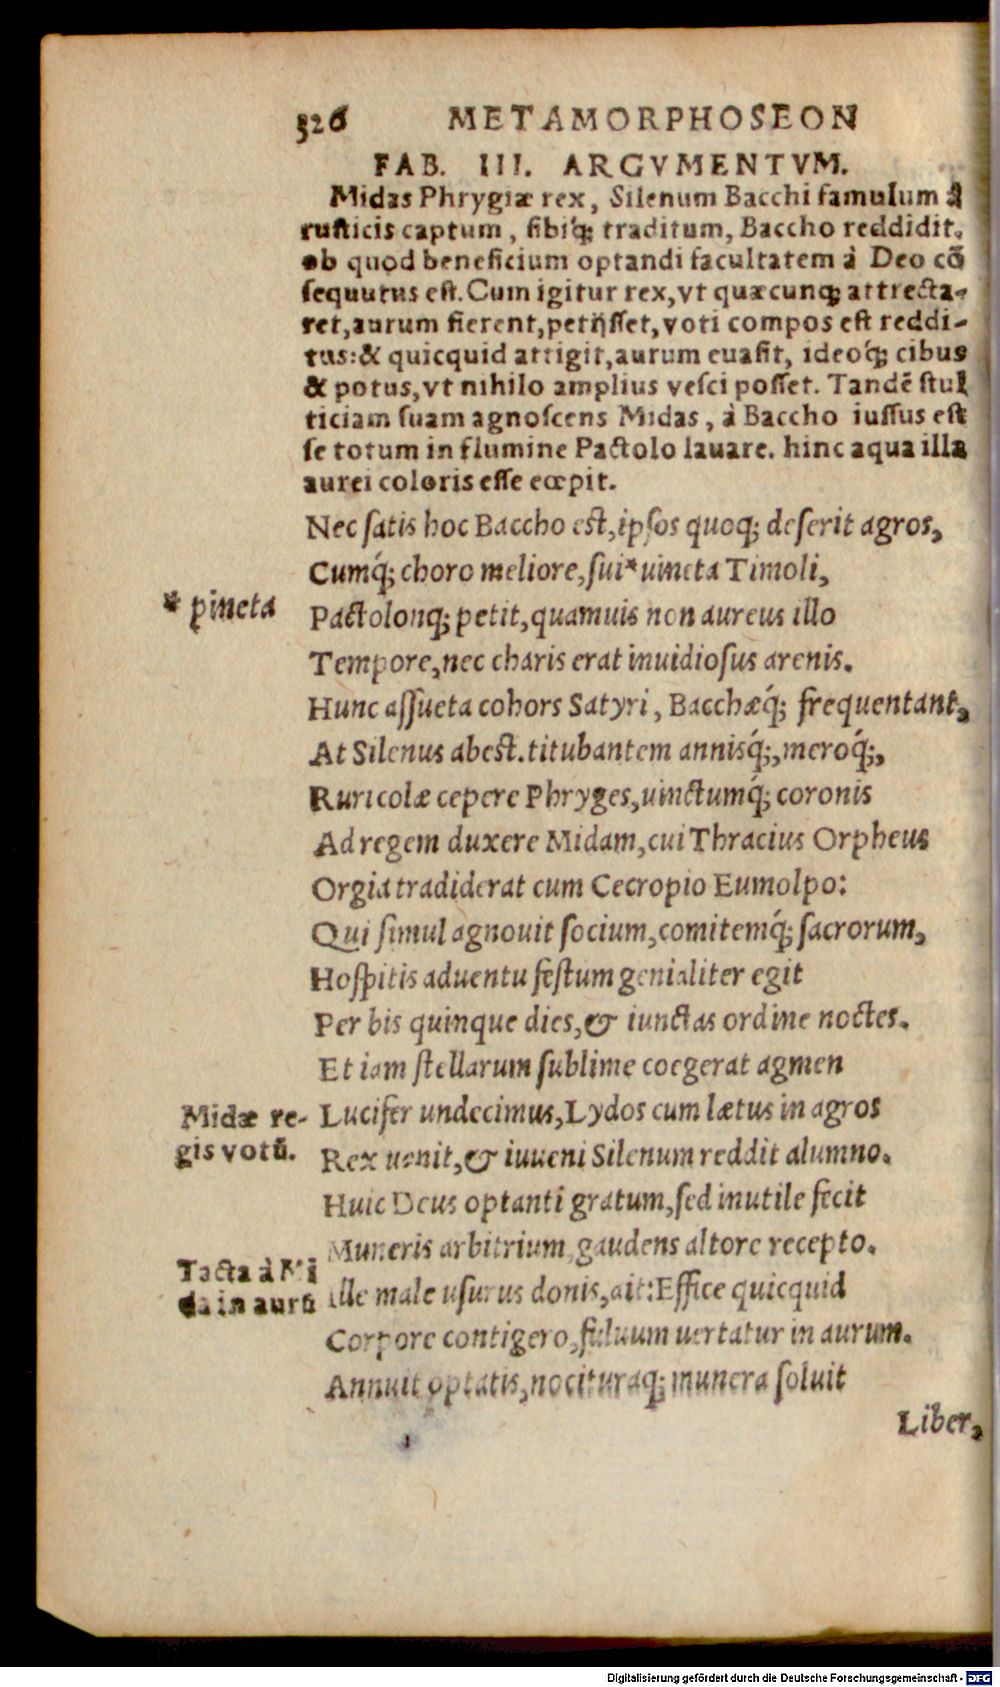 326 METAMORPHOSEON
FAB. III. ARGVMENTVM.
Midas Phrygiæ rex, Silenum Bacchi famulum â
rusticis captum, sibiq́; traditum, Baccho reddidit.
ob quod beneficium optandi facultatem à Deo cō
sequutus est. Cum igitur rex, vt quæcunq; attrecta-
ret, aurum fierent, petijsset, voti compos est reddi-
tus: & quicquid attigit, aurum euasit, ideoq́; cibus
& potus, vt nihilo amplius vesci posset. Tandē stul
ticiam suam agnoscens Midas, à Baccho iussus est
se totum in flumine Pactolo lauare. hinc aqua illa
aurei coloris esse cœpit.
Nec satis hoc Baccho est, ipsos quoq; deserit agros,
Cumq́; choro meliore, sui* uineta Timoli,
* pineta
Pactolonq; petit, quamuis non aureus illo
Tempore, nec charis erat inuidiosus arenis.
Hunc assueta cohors Satyri, Bacchæq́; frequentant,
At Silenus abest. titubantem annisq́;, meroq́;,
Ruricolæ cepere Phryges, uinctumq́; coronis
Ad regem duxere Midam, cui Thracius Orpheus
Orgia tradiderat cum Cecropio Eumolpo:
Qui simul agnouit socium, comitemq́; sacrorum,
Hospitis aduentu festum genialiter egit
Per bis quinque dies, & iunctas ordine noctes.
Et iam stellarum sublime coegerat agmen
Midæ re-
gis votū.
Lucifer undecimus, Lydos cum lætus in agros
Rex uenit, & iuueni Silenum reddit alumno.
Huic Deus optanti gratum, sed inutile fecit
Muneris arbitrium, gaudens altore recepto.
Tacta à Mi
da in aurū
Ille male usurus donis, ait: Effice quicquid
Corpore contigero, fuluum uertatur in aurum.
Annuit optatis, nocituraq; munera soluit
Liber,
Digitalisierung gefördert durch die Deutsche Forschungsgemeinschaft - DFG